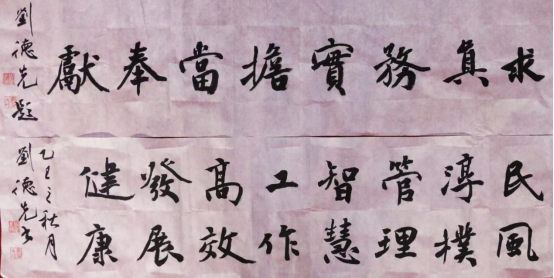 求真務實擔當奉獻
劉德先題
民風淳樸
管理智慧
工作高效
發展健康
乙巳之秋月
劉德先书